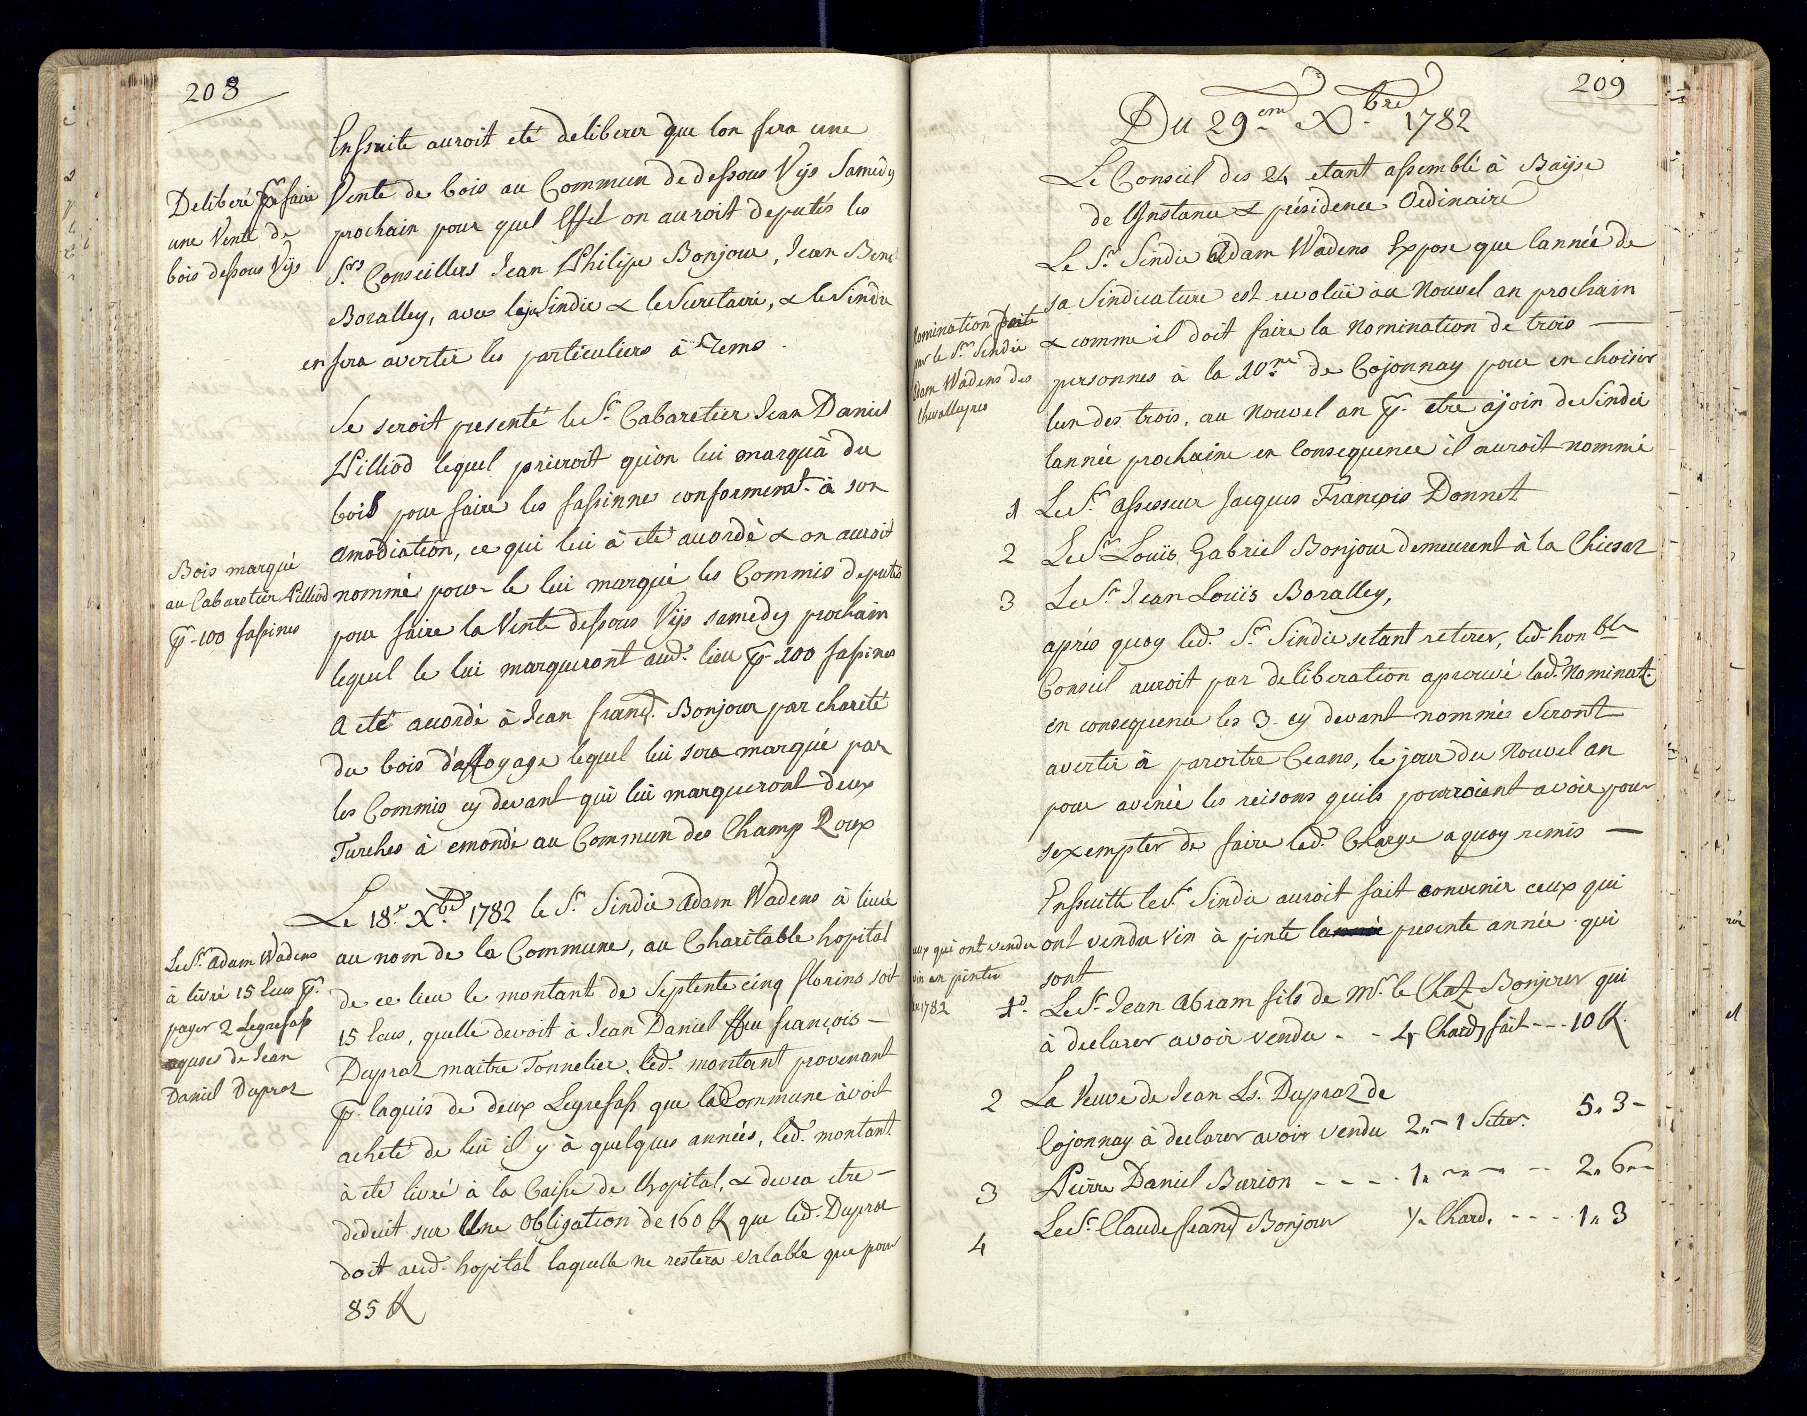 208
Ensuite auroit eté deliberer que lon fera une
Deliberé pr faire
une Vente de
bois dessous Vijs
Vente de bois au Commun de dessous Vijs Samedy
prochain pour quel Effet on auroit deputés les
Srs Conseillers Jean Philipe Bonjour, Jean Bend
Boralley, avec le Sindic & le Secretaire, & le Sindic
en fera avertir les particuliers à Tems.
Se seroit presenté le Sr. Cabaretier Jean Daniel
Pilliod lequel prieroit qu'on lui marquà du
bois pour faire les fassinnes conformemt. à son
Amodiation, ce qui lui à eté acordé & on auroit
Bois marqué
au Cabaretier Pilliod
pr. 100 fassines
nommé pour le lui marqué les Commis deputés
pour faire la Vente dessous Vijs samedy prochain
lequel le lui marqueront aud. lieu pr. 100 fassines
A eté acordé à Jean franç. Bonjour par charité
du bois d'affoyage lequel lui sera marqué par
les Commis cy devant qui lui marqueront deux
Turches à emondé au Commun des Champ Roux
Le 18e. Xbre 1782 le Sr. Sindic Adam Wadens à livré
Le Sr. Adam Wadens
à livré 15 Ecus pr.
payer 2 Legrefass
aquis de Jean
Daniel Dupraz
au nom de la Commune, au Charitable hopital
de ce lieu le montant de Septente cinq florins soit
15 Ecus, quelle devoit à Jean Daniel ffeu françois
Dupraz maitre Tonnelier, led. montant provenant
pr. laquis de deux Legrefass que la Commune àvoit
acheté de lui il y à quelques années, led. montant
à eté livré à la Caisse de lhopital, & devra etre
deduit sur Une Obligation de 160 fl que led. Dupraz
doit aud. hopital laquelle ne restera valable que pour
85 fl
209
Du 29em Xbre 1782
Le Conseil des 24 etant assemblé à Bayse
de Instance & présidence Ordinaire
Le Sr. Sindic Adam Wadens Expose que lannée de
Nomination faite
par le Sr. Sindic
Adam Wadens des
Chevalleyres
sa Sindicature est revoluë au Nouvel an prochain
& comme il doit faire la Nomination de trois
personnes à la 10ne de Cojonnay pour en choisir
lun des trois, au Nouvel an pr. etre àjoin de Sindic
lannée prochaine en Consequence il auroit nommé
1 Le Sr. Assesseur Jacques François Donnet
2 Le Sr. Louis Gabriel Bonjour demeurent à la Chiesaz
3 Le Sr. Jean Louis Boralley,
après quoy led. Sr. Sindic setant reterer, led. hon ble
Conseil auroit par deliberation aprouvé lad. Nominat.
en consequence les 3 cy devant nommés Seront
avertir à paroitre Ceans, le jour du Nouvel an
pour avinée les reisons quils pourroient avoir pour
sexempter de faire led. Charge a quoy remis
Ensuitte le Sr. Sindic auroit fait convenir ceux qui
Ceux qui ont vendu
vin en pinte
en 1782
ont vendu Vin à pinte la presente année qui
sont
1o. Le Sr. Jean Abram fils de Mr. le Chat. Bonjour qui
à declarer avoir vendu - - 4 Chard, fait - - - 10 fl.
2 La Veuve de Jean Ls. Dupraz de
Cojonnay à declarer avoir vendu 2 " - 1 Setier. 5 " 3 -
3 Pierre Daniel Burion - - - - 1 " - " - - - 2 " 6 "-
4 Le Sr. Claude franç Bonjour ½ Chard. - - - - 1 " 3